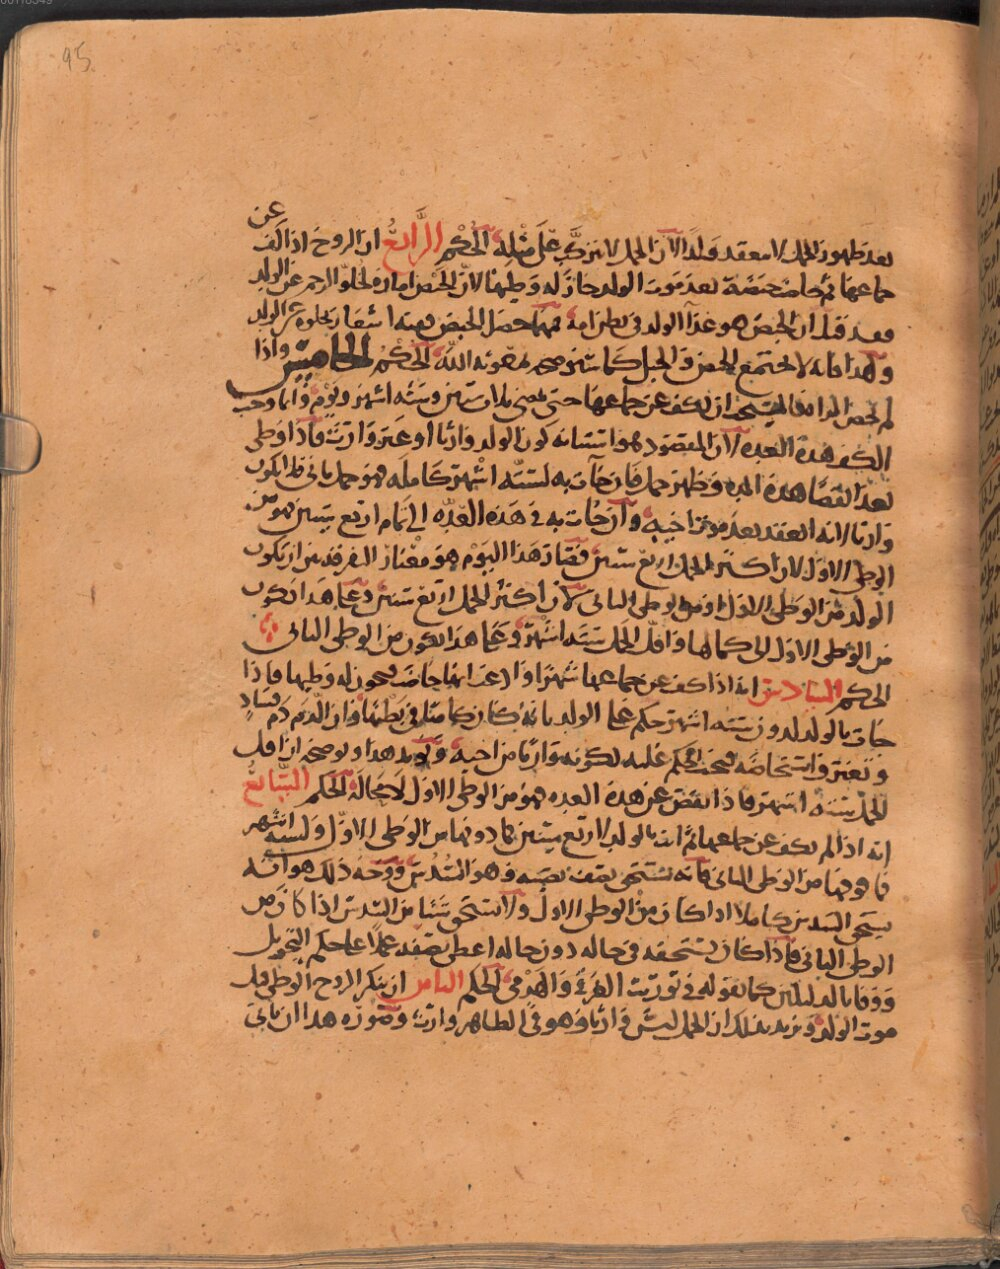 95
عن
بعد ظهور الحمل لا ينعقد ولدًا لأن الحمل لا يتركب على مثله الحكم الرابع ان الزوج اذا كف
جماعها ثم حاضت حيضة بعد موت الولد جاز له وطيها لان الحيض امارة لخلو الرحم عن الولد
وقد قيل ان الحيض هو غذا الولد في بطن امه فمهما حصل الحيض ففيه اشعار بخلوه عن الولد
ولهذا فانه لا يجتمع الحيض والحبل كما سنوضحه بمعونة الله الحكم الخامس واذا
لم تحض المراه فالمستحب ان يكف عن جماعها حتى يمضي ثلاث سنين وستة اشهر ويوم وانما وجب
الكف هذه العده لان المقصود هو استبانة كون الولد وارثا او غير وارث فاذا وطي
بعد انقضا هذه المده وظهر حمل فان جات به لستة اشهر كاملة فهو حمل ثاني فلا يكون
وارثا لانه انعقد بعد موت اخيه وان جات به في هذه العده الى تمام اربع سنين فهو من
الوطي الاول لان اكثر الحمل اربع سنين فصار هذا اليوم هو معيار الفرقة بين ان يكون
الولد من الوطي الاول او من الوطي الثاني لان اكثر الحمل اربع سنين فعلى هذا يكون
من الوطي الاول الى كمالها واقل الحمل ستة اشهر وعلى هذا يكون من الوطي الثاني
الحكم السادس انه اذا كف عن جماعها شهرا وادعت انها حاضت فيجوز له وطيها فاذا
جات بالولد لدون ستة اشهر حكم على الولد بانه كان كامنا في بطنها وان الدم دم فساد
وتغير واستحاضه فيجب الحكم عليه لكونه وارثا من اخيه ويؤيد هذا ويوضحه ان اقل
الحمل ستة اشهر فاذا نقص عن هذه العده فهو من الوطي الاول لا محالة الحكم السابع
انه اذا لم يكف عن جماعها ثم اتت بالولد لاربع سنين فما دونها من الوطي الاول ولستة اشهر
فما فوقها من الوطي الثاني فانه يستحق نصف نصيبه وهو السدس ووجه ذلك هو انه
يستحق السدس كاملا اذا كان من الوطي الاول ولا يستحق شيئا من السدس اذا كان من
الوطي الثاني فاذا كان يستحقه في حاله دون حاله اعطي نصفه عملا على حكم التحويل
ووفا بالدليلين كما نقوله في توريث الغرقى والهدمى الحكم الثامن ان ينكر الزوج الوطي قبل
موت الولد ويريد بذلك ان الحمل ليس وارثا وهو في الظاهر وارث وصورة هذا ان ياتي